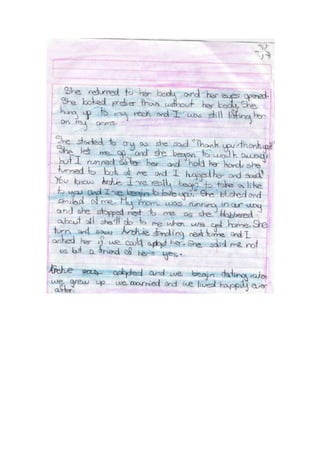 She returned to her body and her eyes opened.
She looked prettier than without her body. She
hung up to my neck and I was still lifting her
on my arms.
She started to cry as she said "Thank you, thank you"
She let me go and she began to walk away
but I runned after her and hold her hand, she
turned to look at me and I hugged her and said "
You know Andie I've really begin to take a like
to you and I've begin to love you". She blushed and
smiled at me. My mom was running in our way
and she stopped next to me as she blabbered
about all she'll do to me when we get home. She
turn and saw Andie standing next to me and I
asked her if we could adopt her. She said me not
us but a friend of hers yes.
Andie was adopted and we begin dating, later
we grew up we married and we lived happily ever
after.